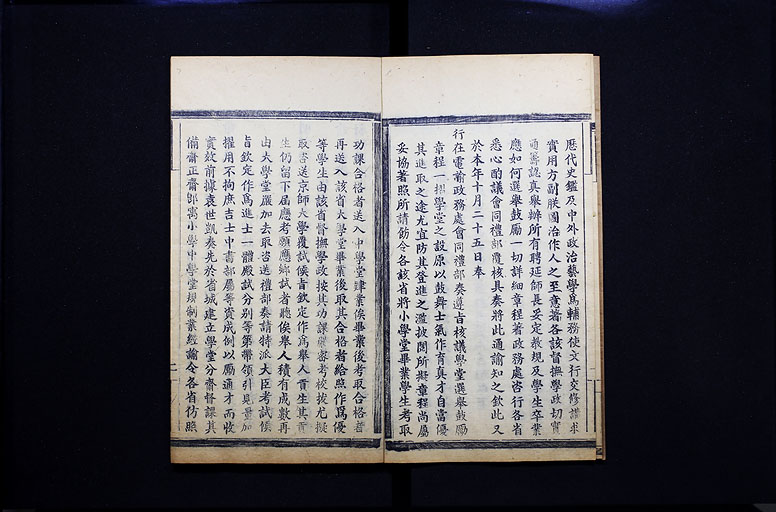 歷代史鑑及中外政治藝學爲輔務使文行交修講求
實用方副朕圖治作人之至意著各該督撫學政切實
通籌認眞舉辦所有聘延師長妥定敎規及學生卒業
應如何選舉鼓勵一切詳細章程著政務處咨行各省
悉心酌議會同禮部覆核具奏將此通諭知之欽此又
於本年十月二十五日奉
行在電諭政務處會同禮部奏遵旨核議學堂選舉鼓勵
章程一摺學堂之設原以鼓舞士氣作育眞才自當優
其進取之途尤宜防其登進之濫披閱所擬章程尚屬
妥協著照所請飭令各該省將小學堂畢業學生考取
功課合格者送入中學堂肄業俟畢業後考取合格者
再送入該省大學堂畢業後取其合格者給照作爲優
等學生由該省督撫學政按其功課嚴密考校拔尤擬
取咨送京師大學覆試候旨欽定作爲舉人貢生其貢
生仍留下屆應考願應鄉試者聽俟舉人積有成數再
由大學堂嚴加去取咨送禮部奏請特派大臣考試候
旨欽定作爲進士一體殿試分別等第帶領引見量加
擢用不拘庶吉士中書部屬等資成例以勵通才而收
實效前據袁世凱奏先於省城建立學堂分齋督課其
備齋正齋即寓小學中學堂規制業經諭令各省仿照
二